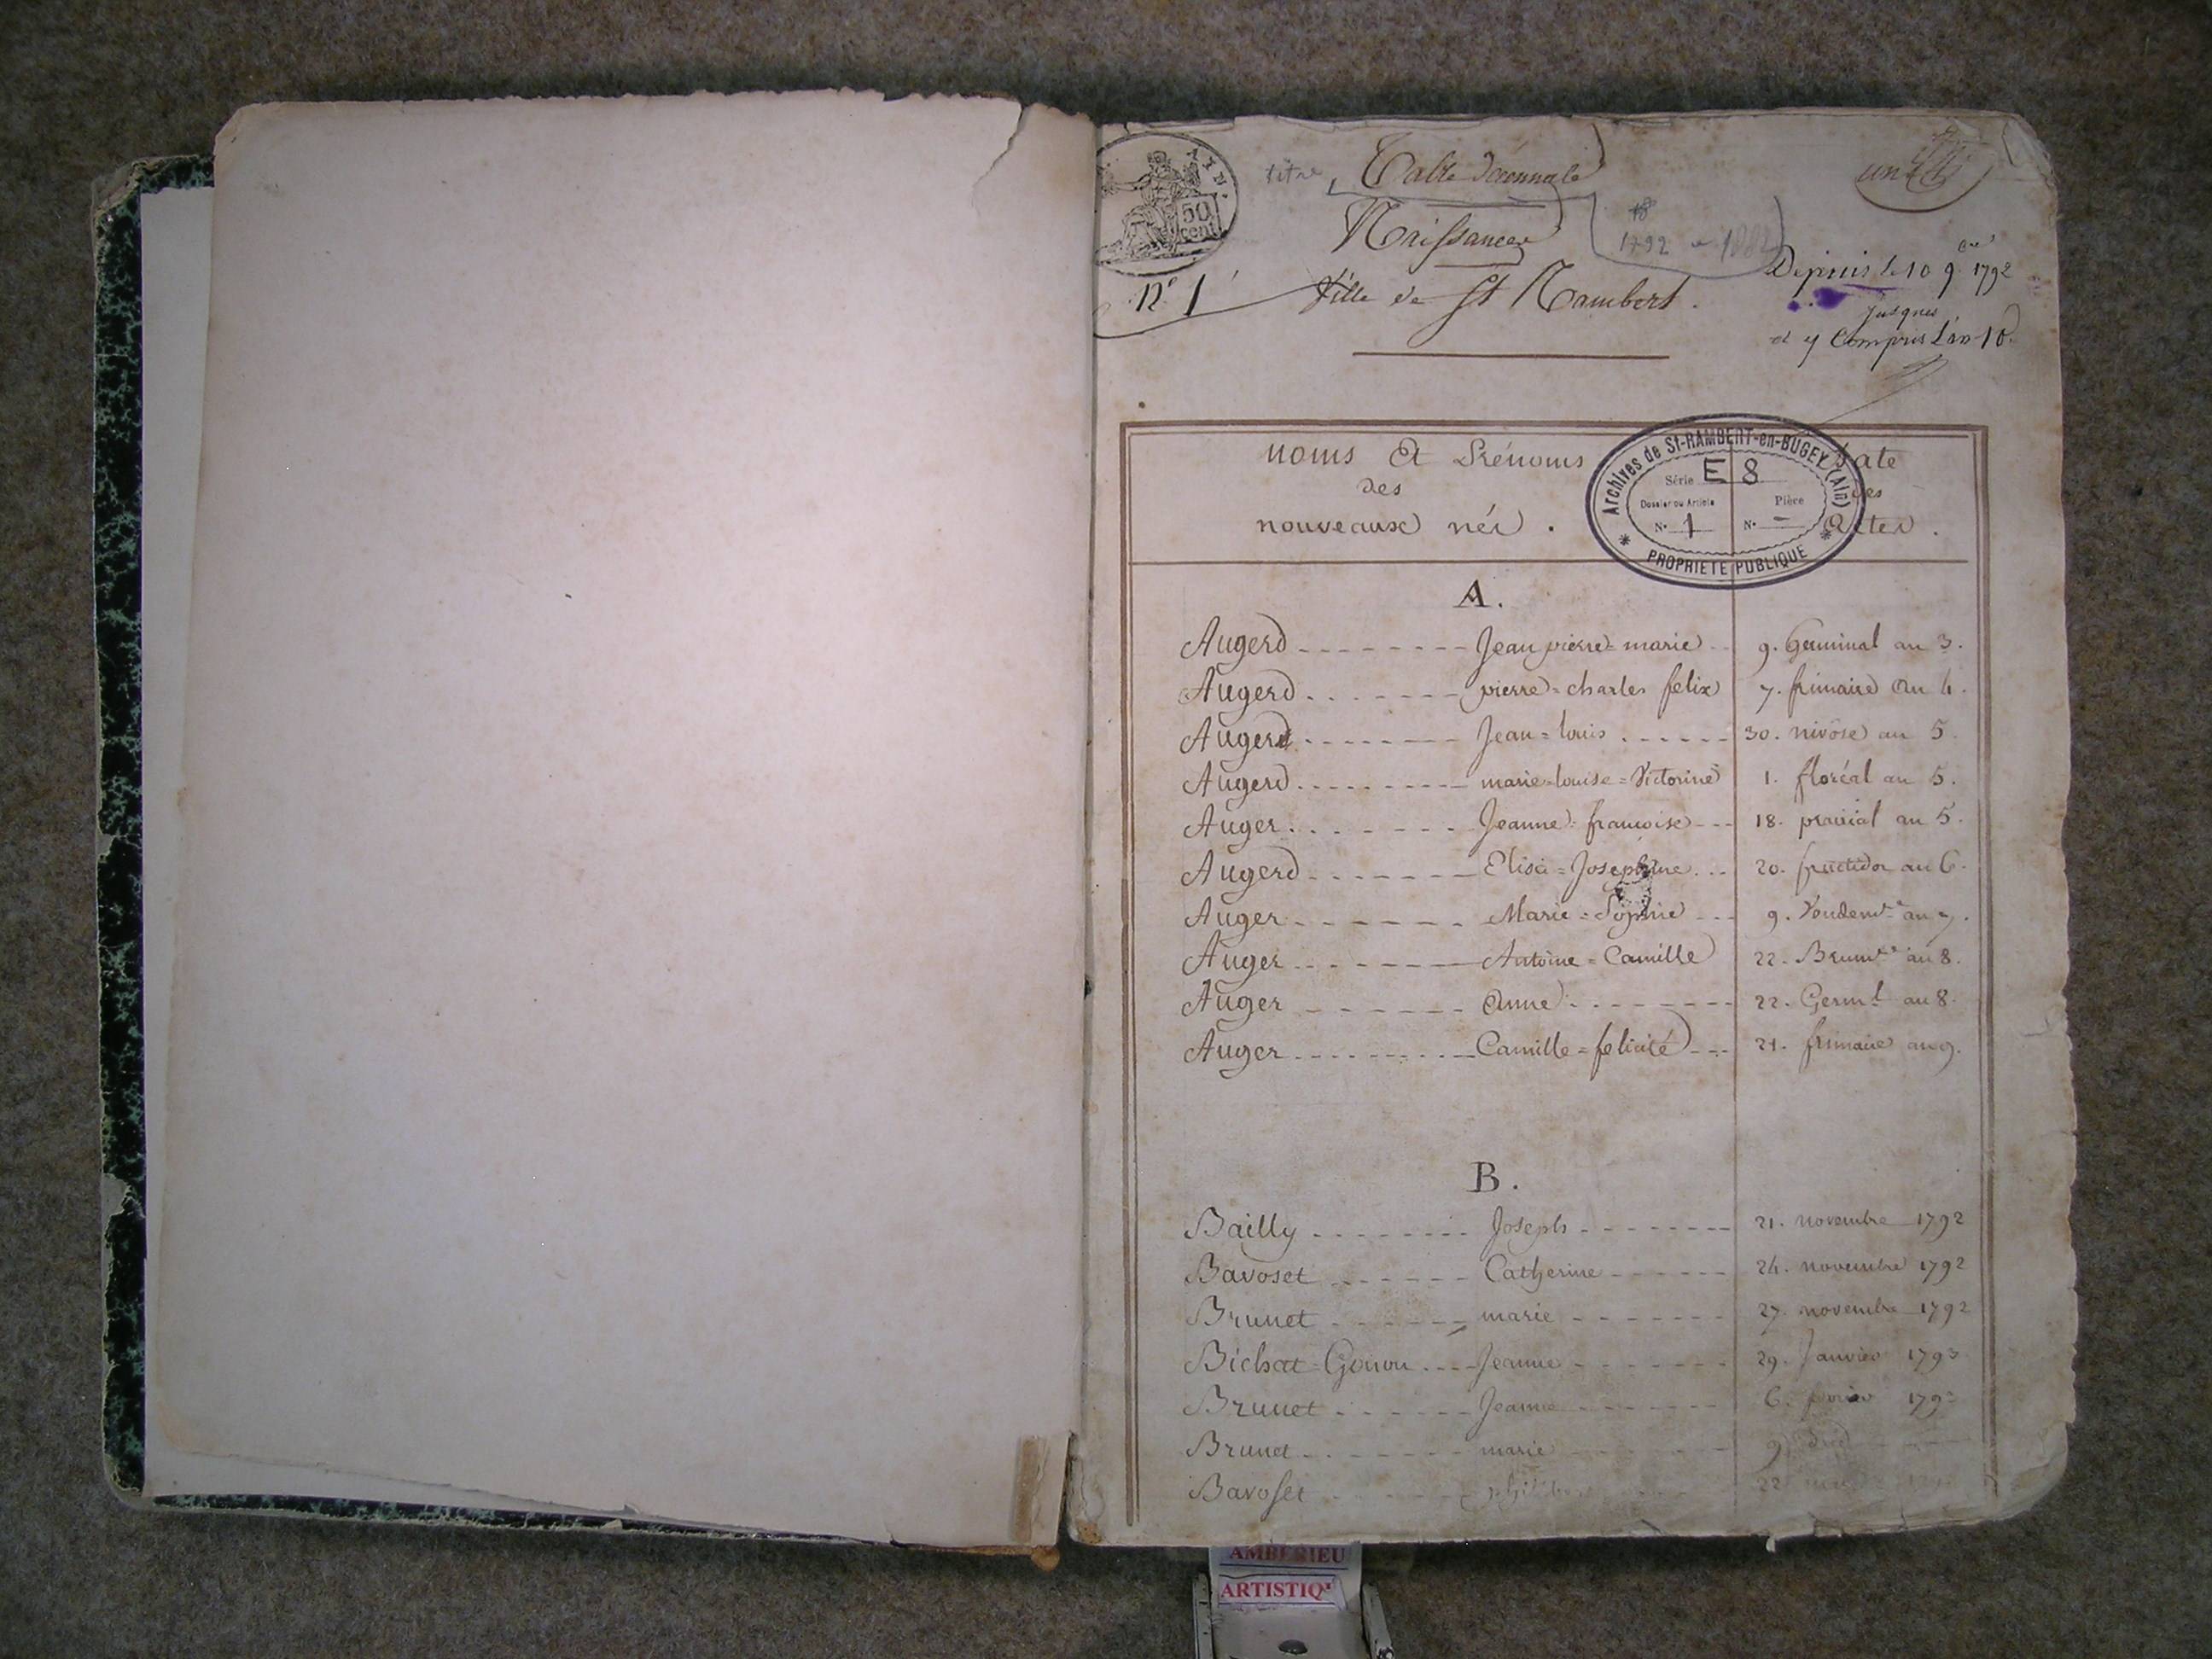 AIN.
50
cent
titre
Table décennale
Naissances
1792
Ville de St Rambert.
N° 1
Depuis le 10 9bre 1792
jusques
et y Compris L'an 10.
noms Et Prénoms
des
nouveaux nés.
Date
des
Actes.
Archives de St-RAMBERT-en-BUGEY (Ain)
Série E 8
Dossier ou Article Pièce
N° 1 N° -
PROPRIETE PUBLIQUE
A.
Augerd Jean pierre=marie 9. Germinal an 3.
Augerd pierre=charles felix 7. frimaire an 4.
Augerd Jean=louis 30. nivôse an 5.
Augerd marie=louise=Victorine 1. floréal an 5.
Auger Jeanne=françoise 18. prairial an 5.
Augerd Elisa=Josephine 20. fructidor an 6.
Auger Marie=Sophie 9. Vendemre an 7.
Auger Antoine=Camille 22. Brumre an 8.
Auger Anne 22. Germl an 8.
Auger Camille=felicité 21. frimaire an 9.
B.
Bailly Joseph 21. novembre 1792
Bavoset Catherine 24. novembre 1792
Brunet marie 27. novembre 1792
Bichat=Gonon Jeanne 29. Janvier 1793
Brunet Jeanne 6. 1793
Brunet marie 9
Bavoset 22
AMBERIEU
ARTISTIQ